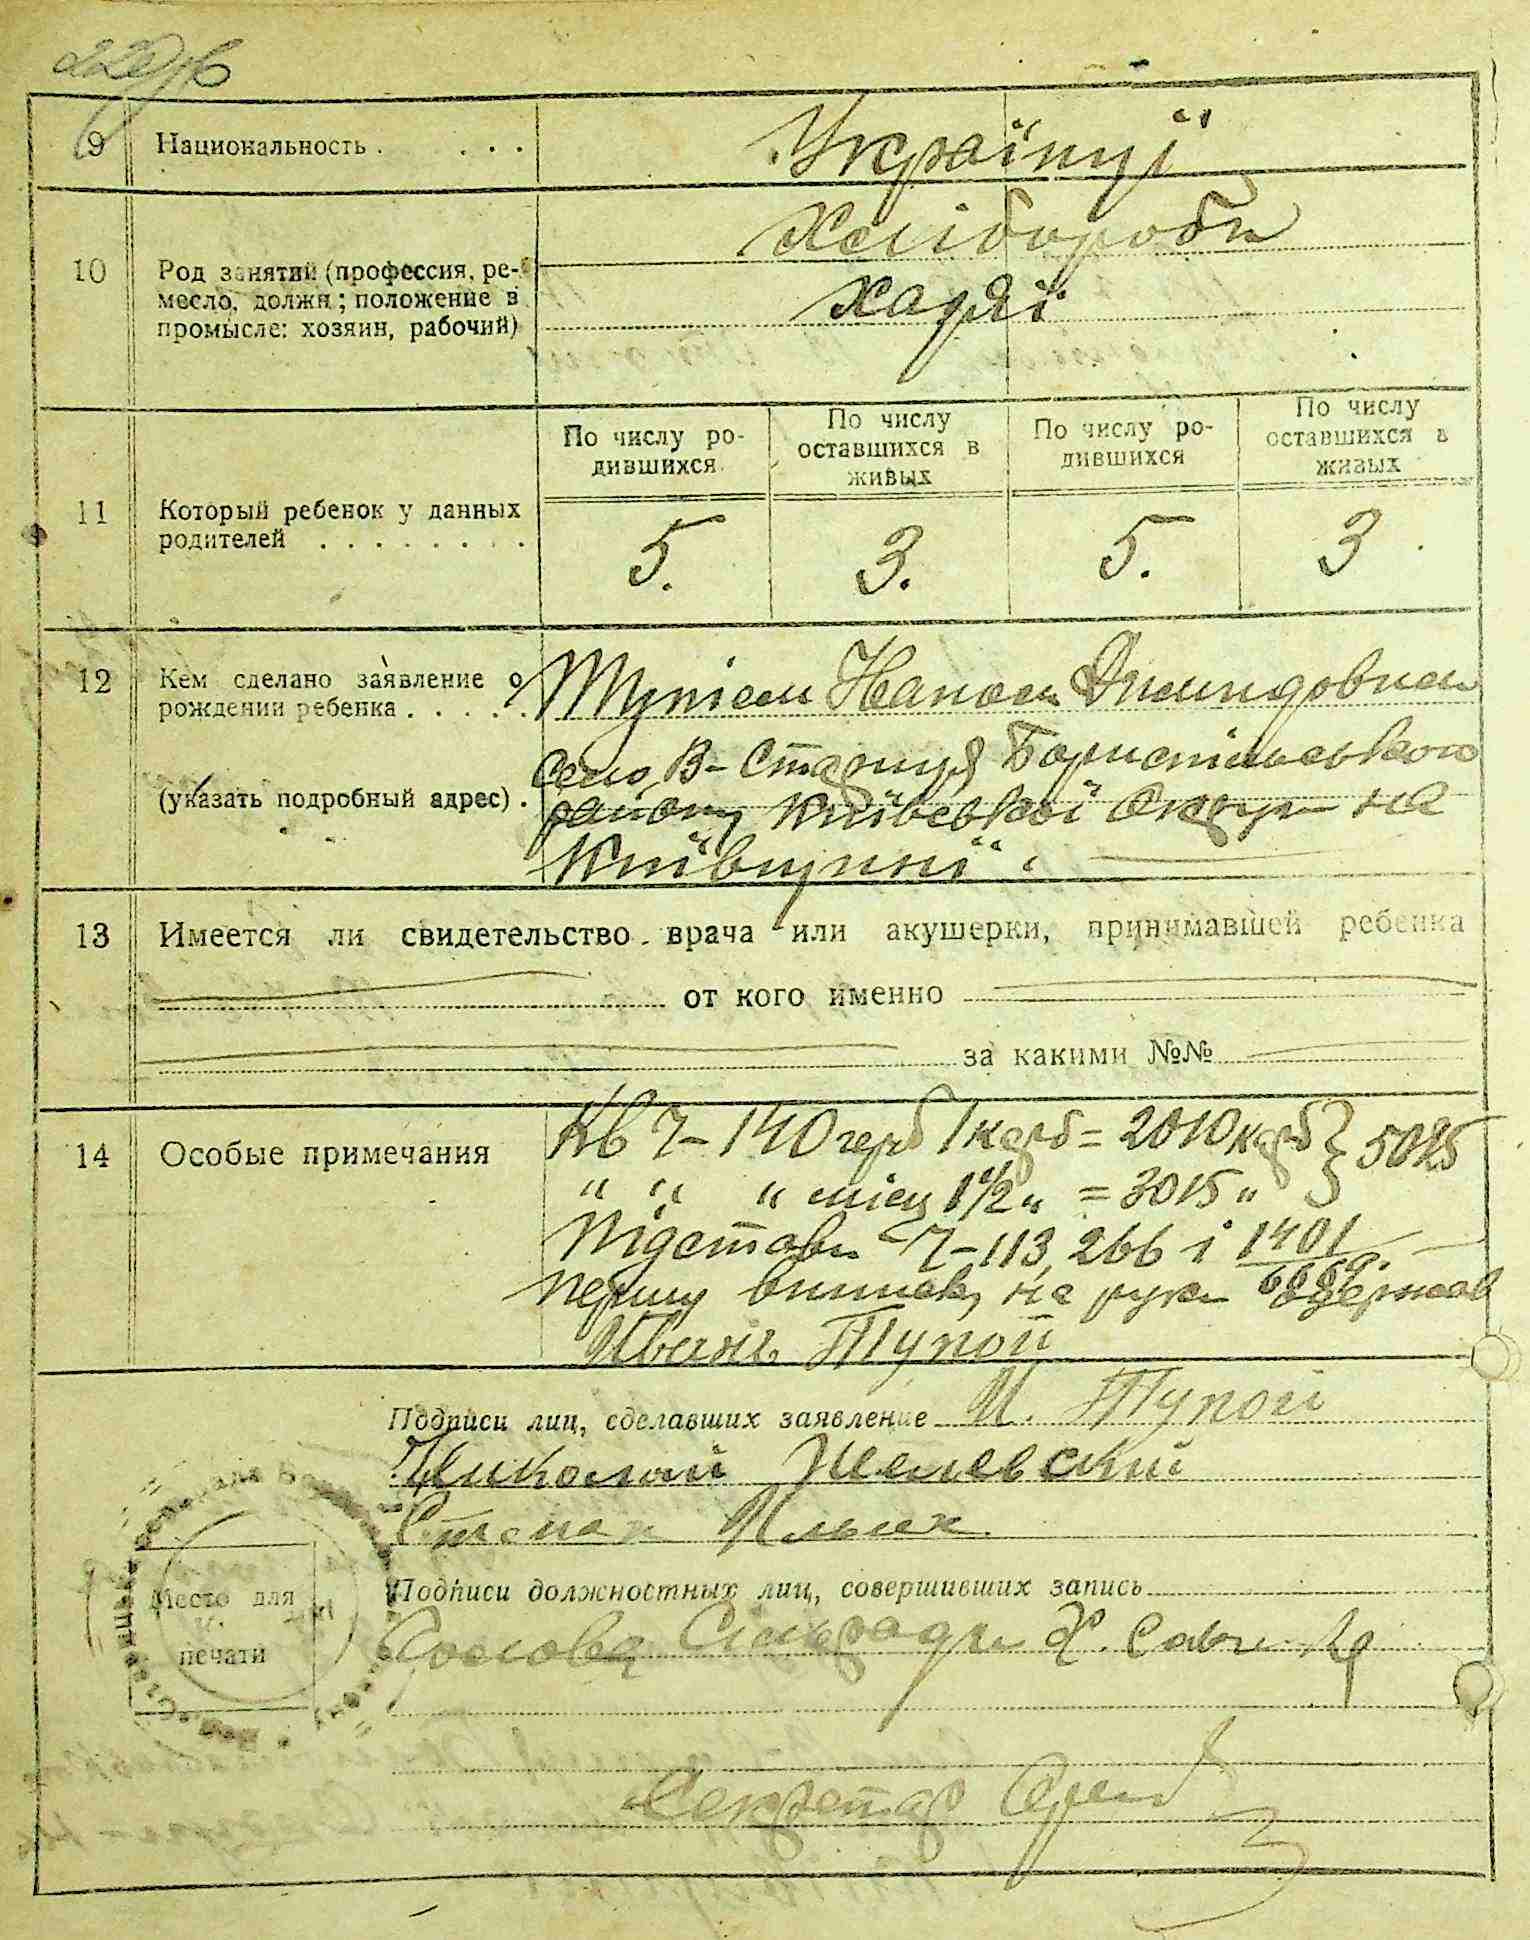 9 Национальность . . . . Українці
10 Род занятий (профессия, ре-
месло, должн.; положение в
промысле: хозяин, рабочий)
Хлібороби
хазяї
11 Который ребенок у данных
родителей . . . . . . . .
По числу ро-
дившихся
По числу
оставшихся в
живых
По числу ро-
дившихся
По числу
оставшихся в
живых
5. 3. 5. 3
12 Кем сделано заявление о
рождении ребенка . . . . .
(указать подробный адрес) .
село В-Стариця Бориспільського
району Київської Округи на
Київщині
13 Имеется ли свидетельство врача или акушерки, принимавшей ребенка
от кого именно
за какими №№
14 Особые примечания
Кв 7-140 герб 1 карб = 2010 карб } 5025
" " " місц 1 1/2 " = 3015 "
Підстава 7-113, 266 і 1401
першу виписку на руки одержав
Иванъ Тупой
Подписи лиц, сделавших заявление И. Тупой
Николай
Степан
Место для
печати
Подписи должностных лиц, совершивших запись
Голова Сільради
Секретар